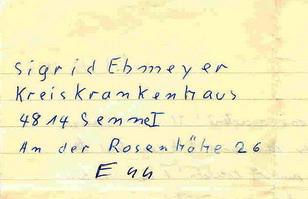 Sigrid Ebmeyer
Kreiskrankenhaus
4814 Senne I
An der Rosenhöhe 26
E 44